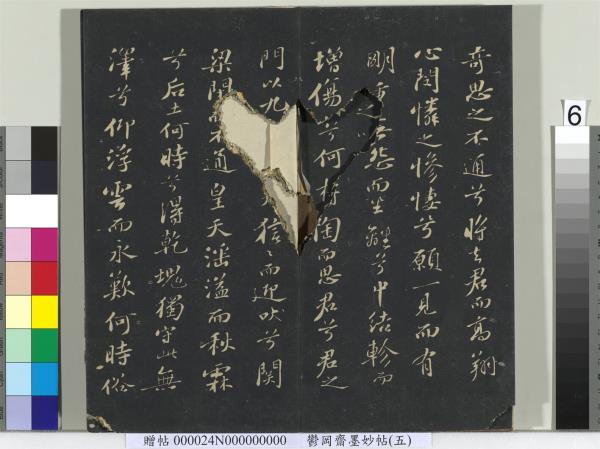 奇思之不通兮將去君而高翔
心閔憐之慘悽兮願一見而有
明重無怨而生離兮中結軫而
增傷陶而思君兮君之
門以九狺〻而迎吠兮関
梁閉不通皇天淫溢而秋霖
兮后土何時兮得乾塊獨守此無
澤兮仰浮雲而永歎何時俗
6
贈帖 000024N000000000 鬱岡齋墨妙帖(五)